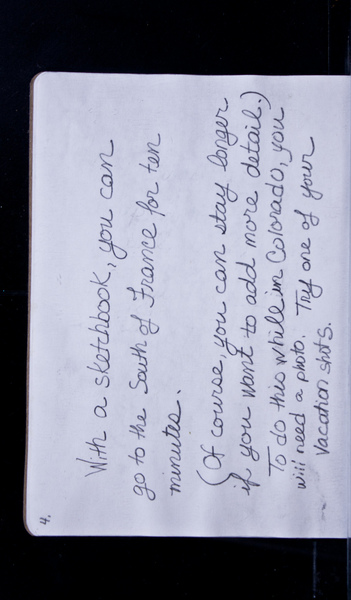 4.
With a sketchbook, you can
go to the South of France for ten
minutes.
(Of course, you can stay longer
if you want to add more detail.)
To do this while in Colorado, you
will need a photo. Try one of your
vacation shots.